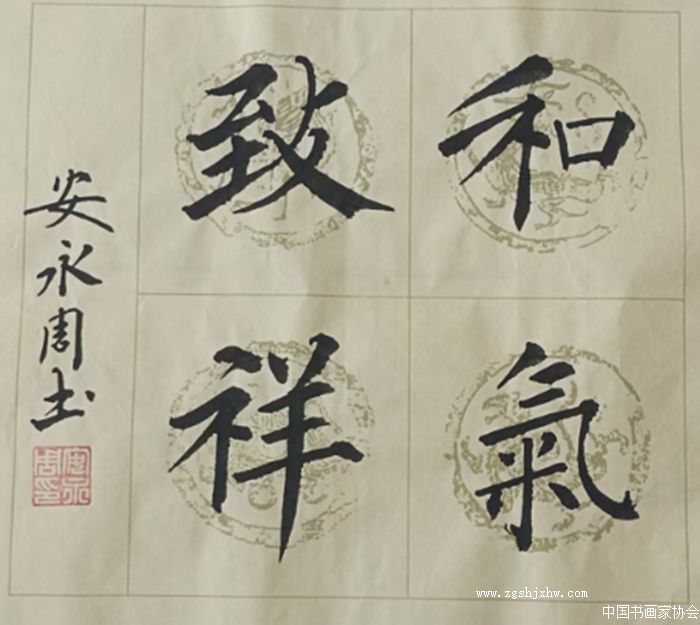 和氣
致祥
安永周书
www.zgshjxhw.com
中国书画家协会